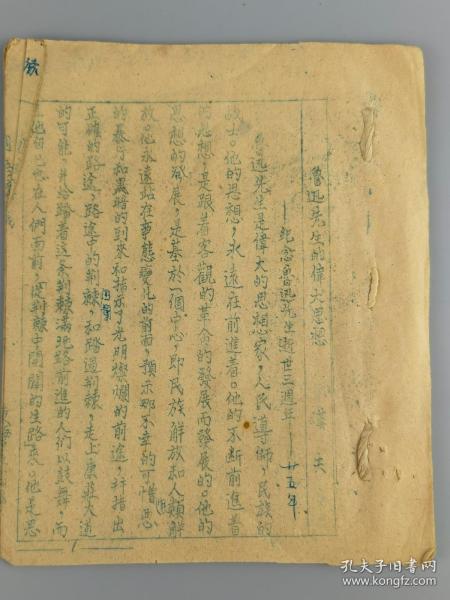 魯迅先生的偉大思想 偉夫
——紀念魯迅先生逝世三週年—— 廿五年
魯迅先生是偉大的思想家，人民導師，民族的
战士。他的思想，永遠在前進着。他的不断前進着
的思想，是跟着客觀的革命的發展而發展的。他的
思想的發展，是基於一個中心，即民族解放和人類解
放。他永遠站在事態變化的前面，預示那不幸的可憎恶
的暴行和黑暗的到來和指示了光明燦爛的前途，并指出
正確的路途，路途中的荆棘，和踏過荆棘，走上康莊大道
的可能，并给踏着這条荆棘滿地路前進的人們以鼓舞，而
他自己也在人們面前，從荆棘中開闢的生路來。他是思
孔夫子旧书网
www.kongfz.com